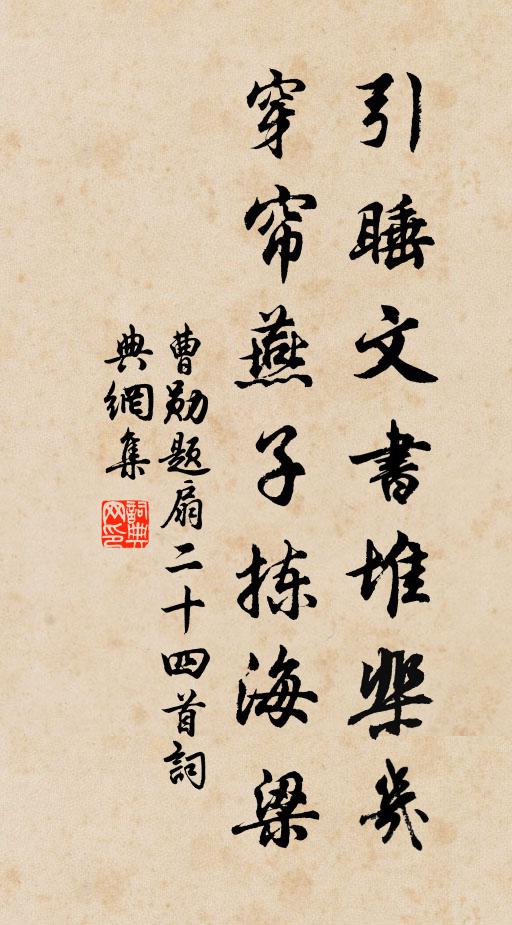 引睡文書堆棐幾
穿帘燕子拣海梁
曹勋题扇二十四首詞
典網集
詞典
网印